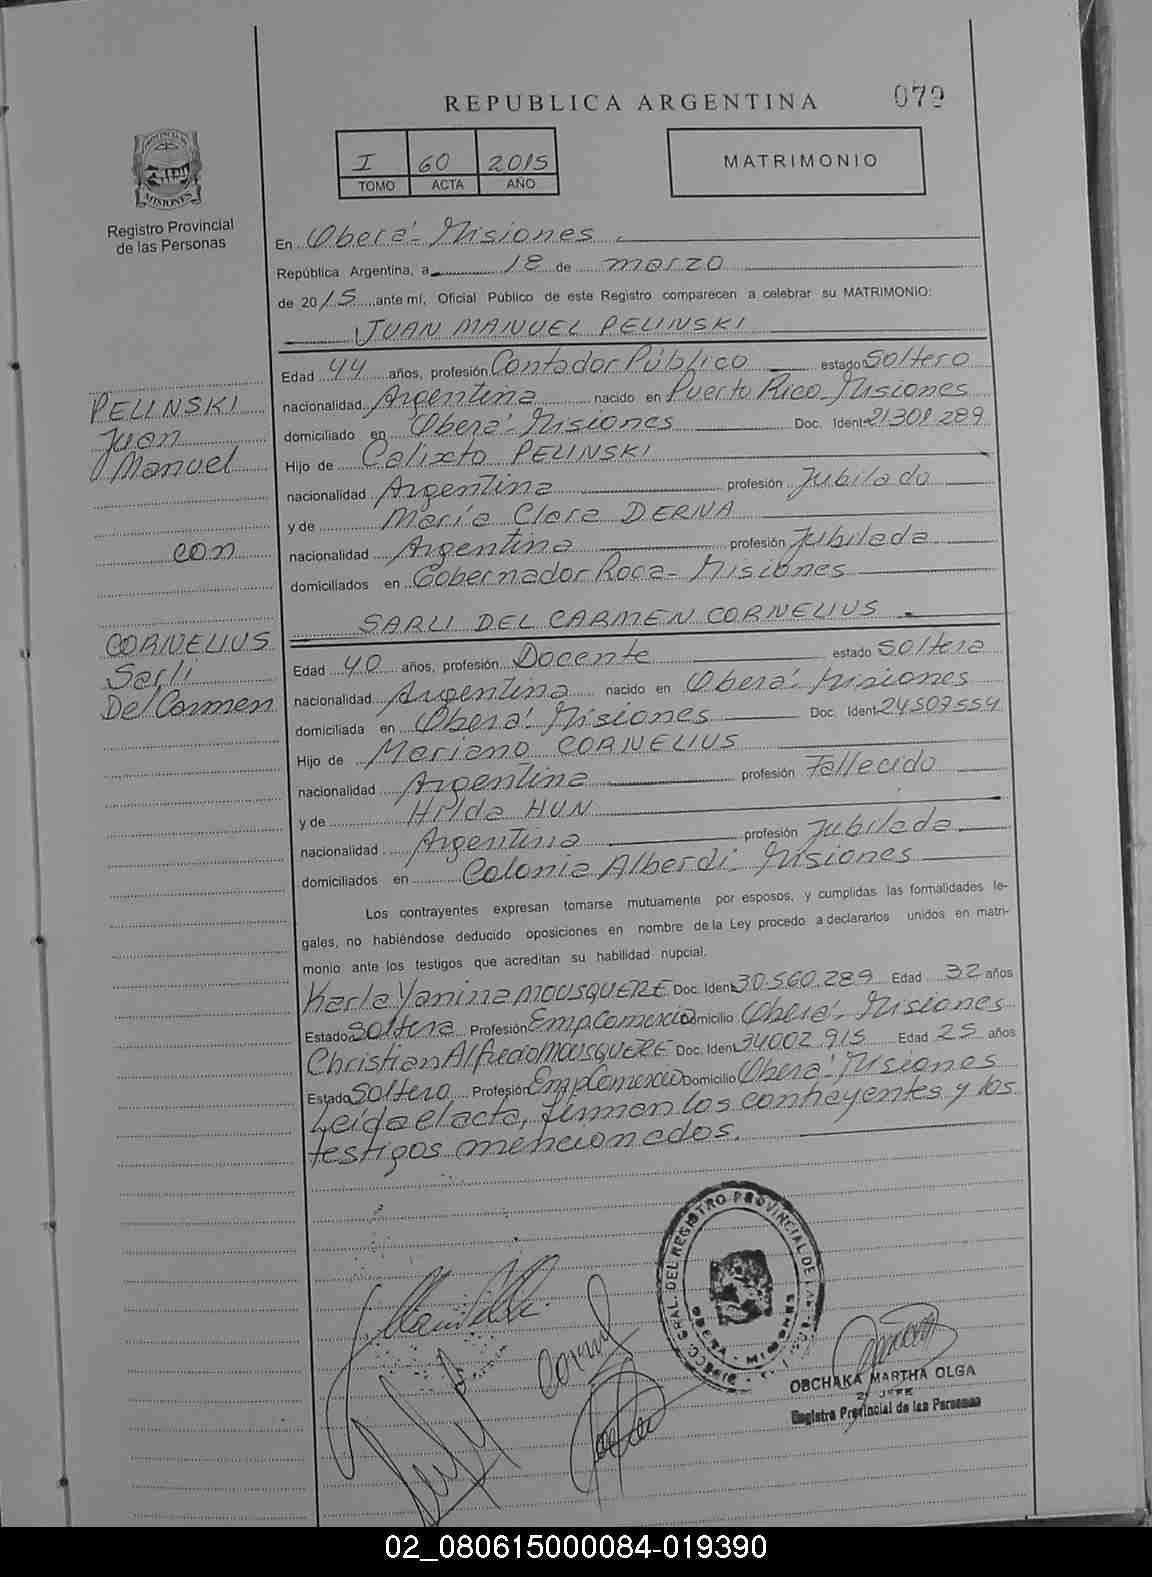 REPUBLICA ARGENTINA 079
I 60 2015
TOMO ACTA AÑO
MATRIMONIO
PROVINCIA DE
MISIONES
Registro Provincial
de las Personas
En Oberá - Misiones
República Argentina, a 18 de marzo
de 2015 ante mí, Oficial Público de este Registro comparecen a celebrar su MATRIMONIO:
JUAN MANUEL PELINSKI
Edad 44 años, profesión Contador Público estado Soltero
nacionalidad Argentina nacido en Puerto Rico - Misiones
domiciliado en Oberá - Misiones Doc. Ident 21301.289
Hijo de Calixto PELINSKI
nacionalidad Argentina profesión Jubilado
y de María Clara DERNA
nacionalidad Argentina profesión Jubilada
domiciliados en Gobernador Roca - Misiones
PELINSKI
Juan
Manuel
con
CORNELIUS
Sarli
Del Carmen
SARLI DEL CARMEN CORNELIUS
Edad 40 años, profesión Docente estado soltera
nacionalidad Argentina nacido en Oberá - Misiones
domiciliada en Oberá - Misiones Doc. Ident 24507554
Hijo de Mariano CORNELIUS
nacionalidad Argentina profesión Fallecido
y de Hilda HUN
nacionalidad Argentina profesión Jubilada
domiciliados en Colonia Alberdi - Misiones
Los contrayentes expresan tomarse mutuamente por esposos, y cumplidas las formalidades le-
gales, no habiéndose deducido oposiciones en nombre de la Ley procedo a declararlos unidos en matri-
monio ante los testigos que acreditan su habilidad nupcial.
Karla Yanina MOUSQUERE Doc. Ident 30.560.289 Edad 32 años
Estado Soltera Profesión Emp Comercio Domicilio Oberá - Misiones
Christian Alfredo MOUSQUERE Doc. Ident 34002.915 Edad 25 años
Estado Soltero Profesión Emp Comercio Domicilio Oberá - Misiones
Leída el acta, firman los contrayentes y los
testigos mencionados.
DIRECC. GRAL. DEL REGISTRO PROVINCIAL DE LAS
OBERA - MISIONES
OBCHAKA MARTHA OLGA
2º JEFE
Registro Provincial de las Personas
02_080615000084-019390